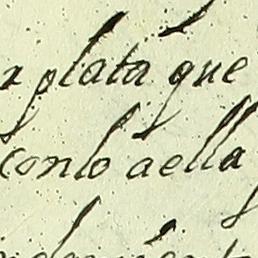 plata que
conlo aella